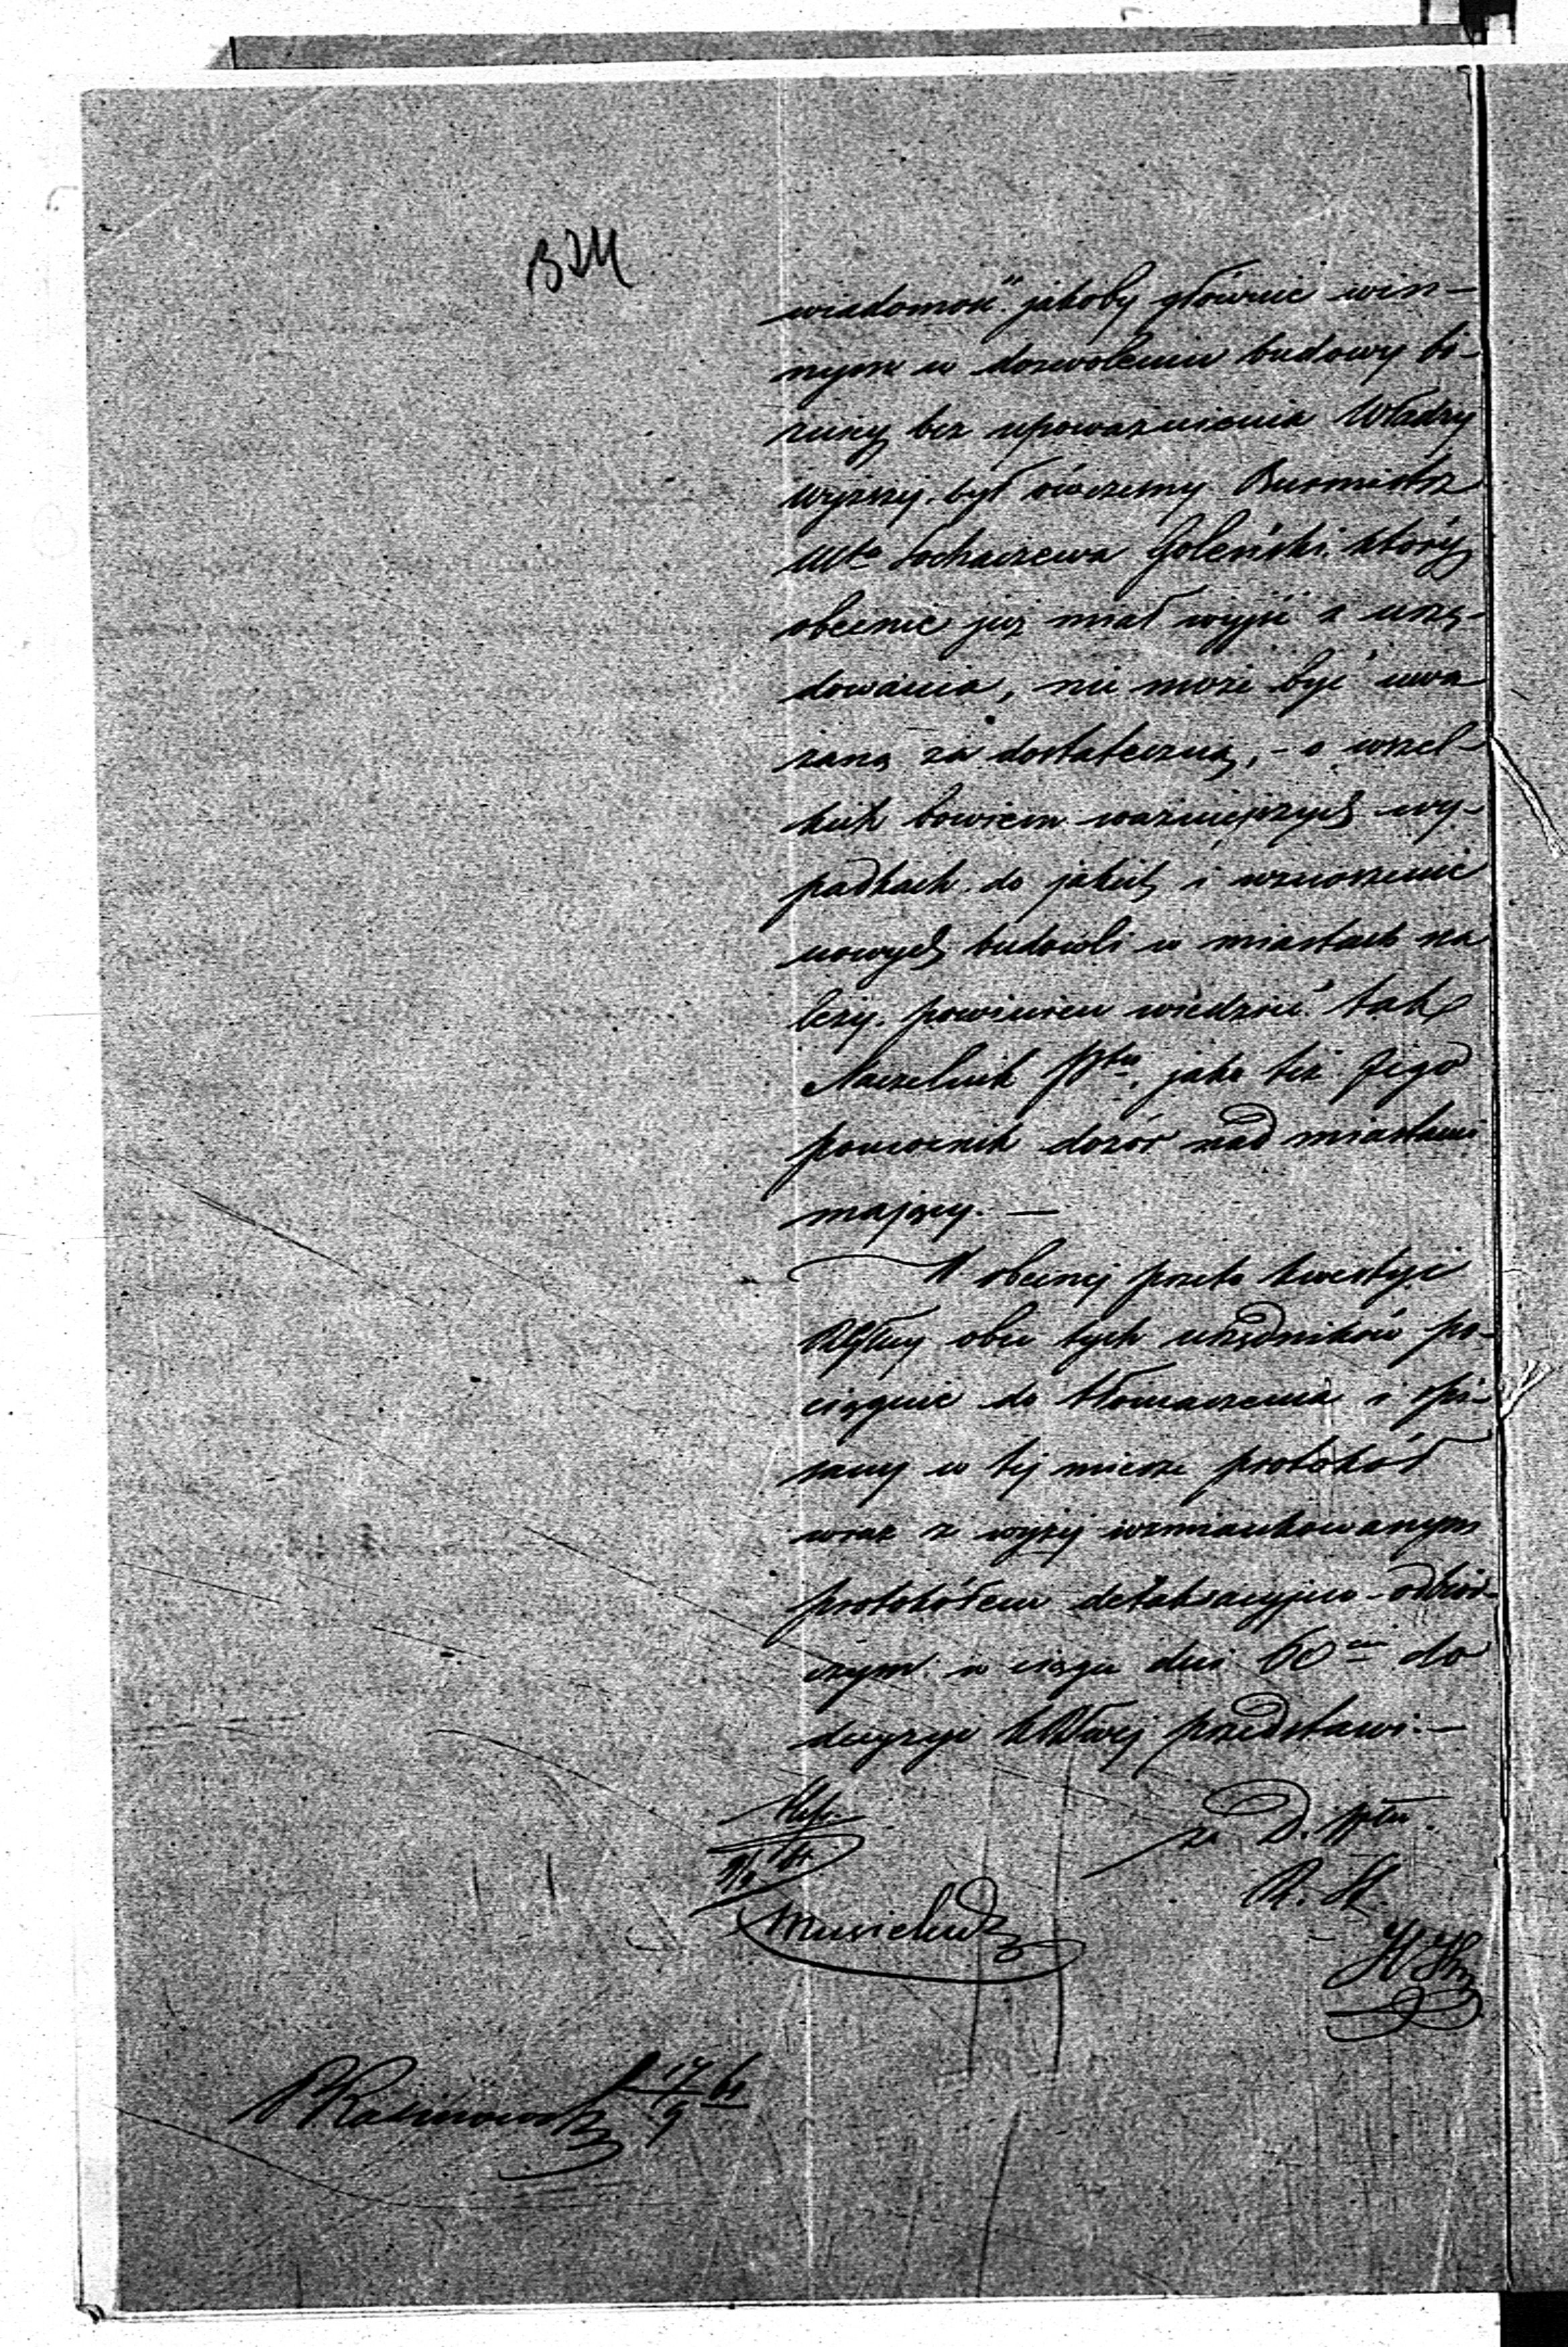 324
wiadomość jakoby głównie win-
nym w dozwoleniu budowy bó-
żnicy bez upoważnienia Władzy
wyższej był ówczesny Burmistrz
Mta Sochaczewa Goleński który
obecnie już miał wyjść z urzę-
dowania, nie może być uwa
żaną za dostateczną, - o wszel-
kich bowiem ważniejszych wy-
padkach do jakich i wznoszenie
nowych budowli w miastach na
leży powinien wiedzieć tak
Naczelnik Ptu, jako też Jego
pomocnik dozór nad miastami
mający. —
W obecnej przeto kwestyi
obu tych urzędników po-
ciągnie do tłomaczenia i spi-
sany w tej mierze protokół
wraz z wyżej wzmiankowanym
protokółem detaksacyjno-odbior-
czym w ciągu dni 60ciu do
decyzyi przedstawi. —
za D. Wydu.
R. St.
17/9 61